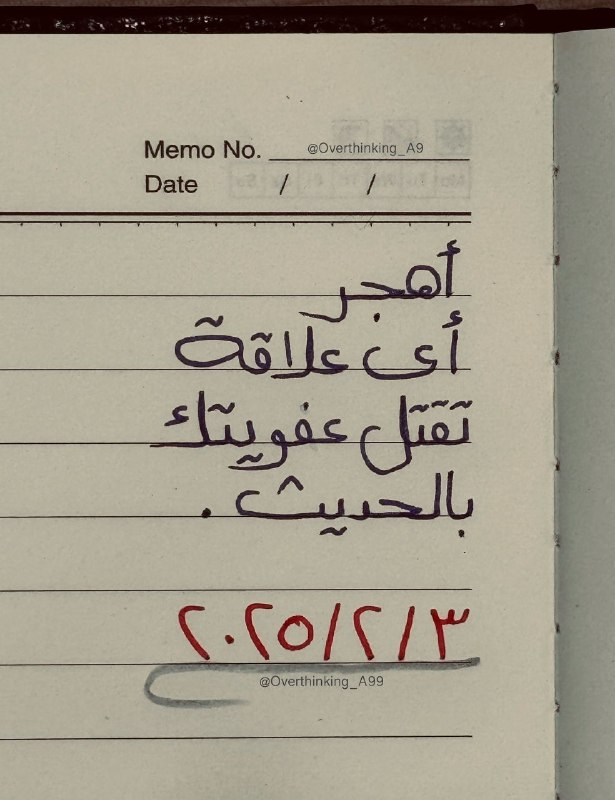 Memo No. @Overthinking_A9
Date / /
أهجر
أى علاقة
تقتل عفويتك
بالحديث .
٢٠٢٥/٢/٣
@Overthinking_A99